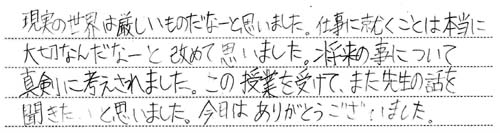 現実の世界は厳しいものだなーと思いました。仕事に就むくことは本当に
大切なんだなーと改めて思いました。将来の事について
真剣に考えされました。この授業を受けて、また先生の話を
聞きたいと思いました。今日はありがとうございました。